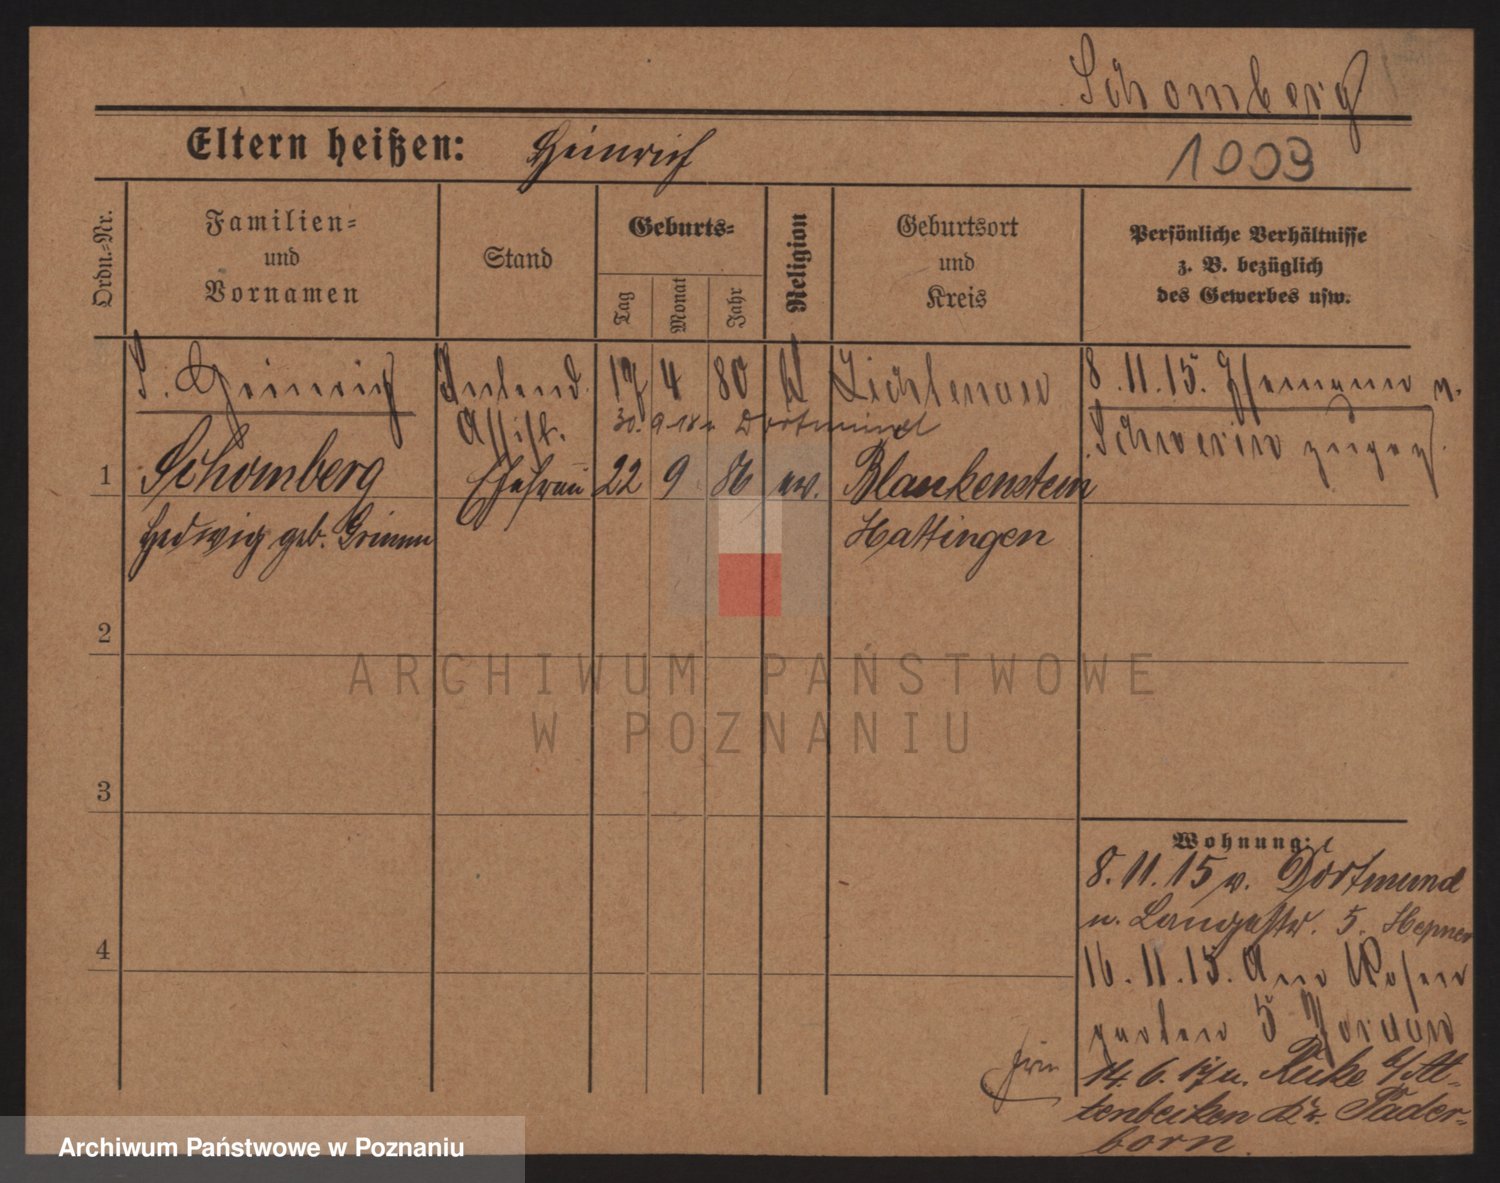 Schomberg
Eltern heißen: Heinrich
1003
Ordn.-Nr.
Familien-
und
Vornamen
Stand
Geburts-
Tag
Monat
Jahr
Religion
Geburtsort
und
Kreis
Persönliche Verhältnisse
z. B. bezüglich
des Gewerbes usw.
S. Heinrich Intend. 17 4 80 Lichtenau 8.11.15.
Assist. 30. 9 18 Dortmund
Schwerin zugez.
1 Schomberg Ehefrau 22 9 86 ev. Blankenstein
Hedwig geb. Grimm Hattingen
2
3
4
Wohnung:
8.11.15 v. Dortmund
n. Langestr. 5. Hepner
16.11.15. Am Rosen
garten 5 Jordan
14. 6. 17 n. Reike b/ Al-
tenbeken Kr. Pader-
born.
ARCHIWUM PAŃSTWOWE
W POZNANIU
Archiwum Państwowe w Poznaniu